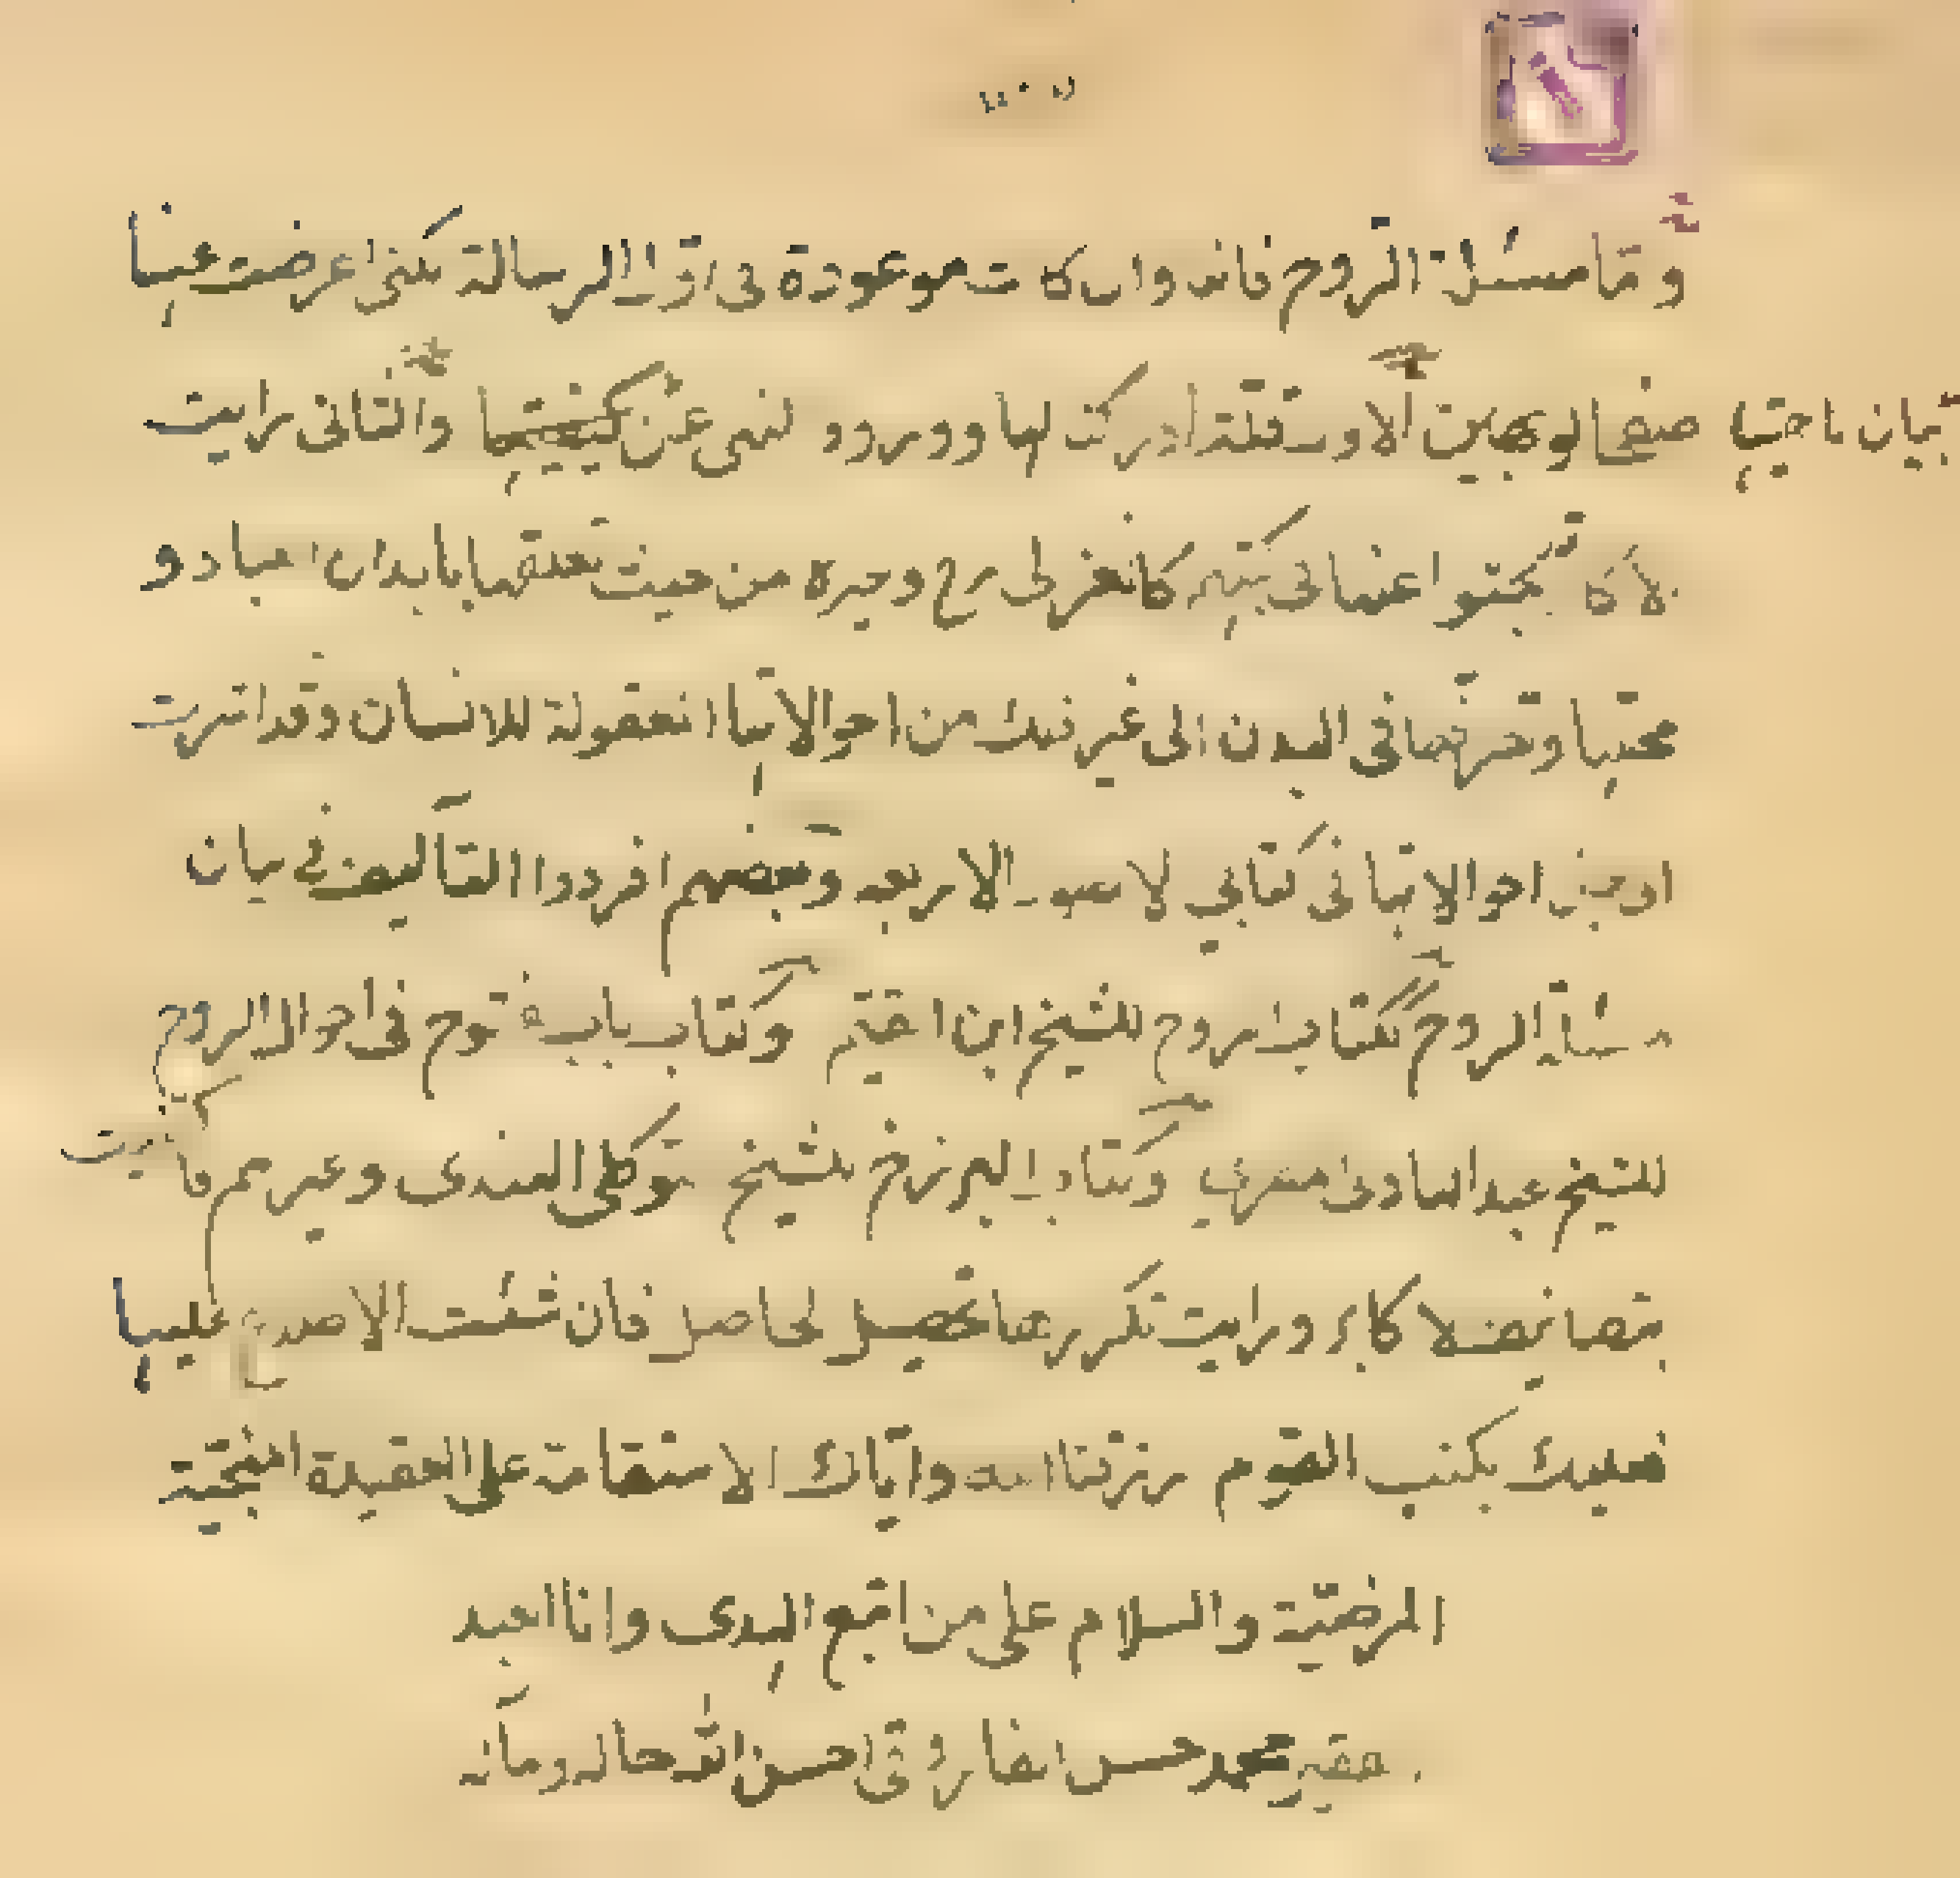 و اما مسئلة الروح فانه وان كانت موعودة فى اول الرسالة لكنى اعرضت عنها
بيان ناحيتها صفحا لوجهين الاول قلة ادراكنا لها وورود النهى عن كيفيتها والثانى رايت
الاكابر بحثوا عنها فى كتبهم كالغزالى رح وغيره من حيث تعلقها بابدان العباد و
محلها وتصرفها فى البدن الى غير ذلك من احوالاتها المعقولة للانسان وقد اندرجت
احوالاتها فى كتابى الاصول الاربعه وبعضهم افردوا التآليف فى بيان
مسئلة الروح ككتاب الروح للشيخ ابن القيم وكتاب باب الفتوح فى احوال الروح
للشيخ عبد الهادى المصرى وكتاب البرزخ للشيخ توكلى الهندى وغيرهم فاكتفيت
بتصانيف الاكابر ورايت تكرارها تحصيل الحاصل فان شئت الاطلاع عليها
فعليك بكتب القوم رزقنا الله واياك الاستقامة على العقيدة المنجية
المرضية والسلام على من اتبع الهدى وانا العبد
الفقير محمد حسن الفاروقى احسن الله حاله ومآله